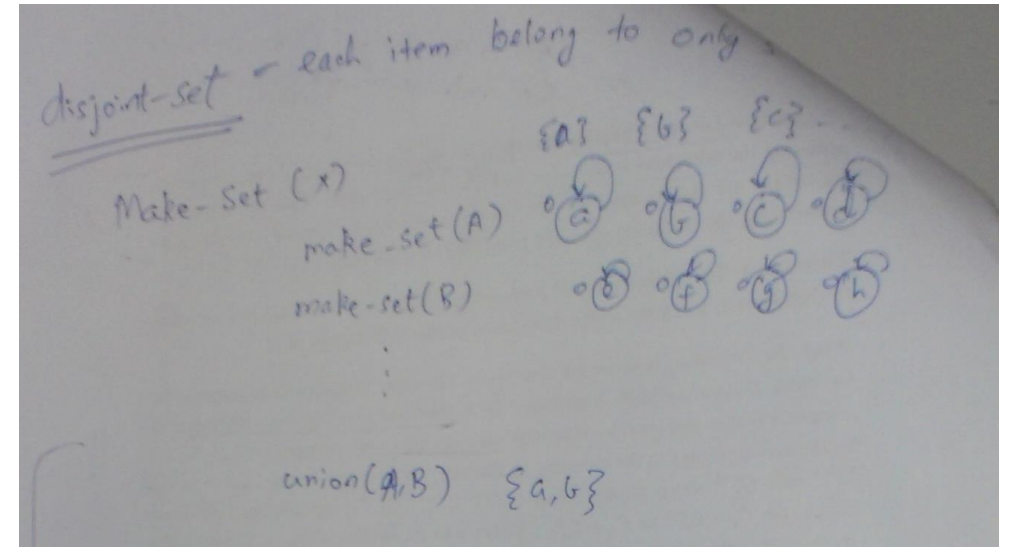 disjoint-set - each item belong to only
{a} {b} {c} ..
Make-Set (x)
make-set(A) 0 a 0 b 0 c 0 d
make-set(B) 0 e 0 f 0 g 0 h
⋮
union(A,B) {a,b}